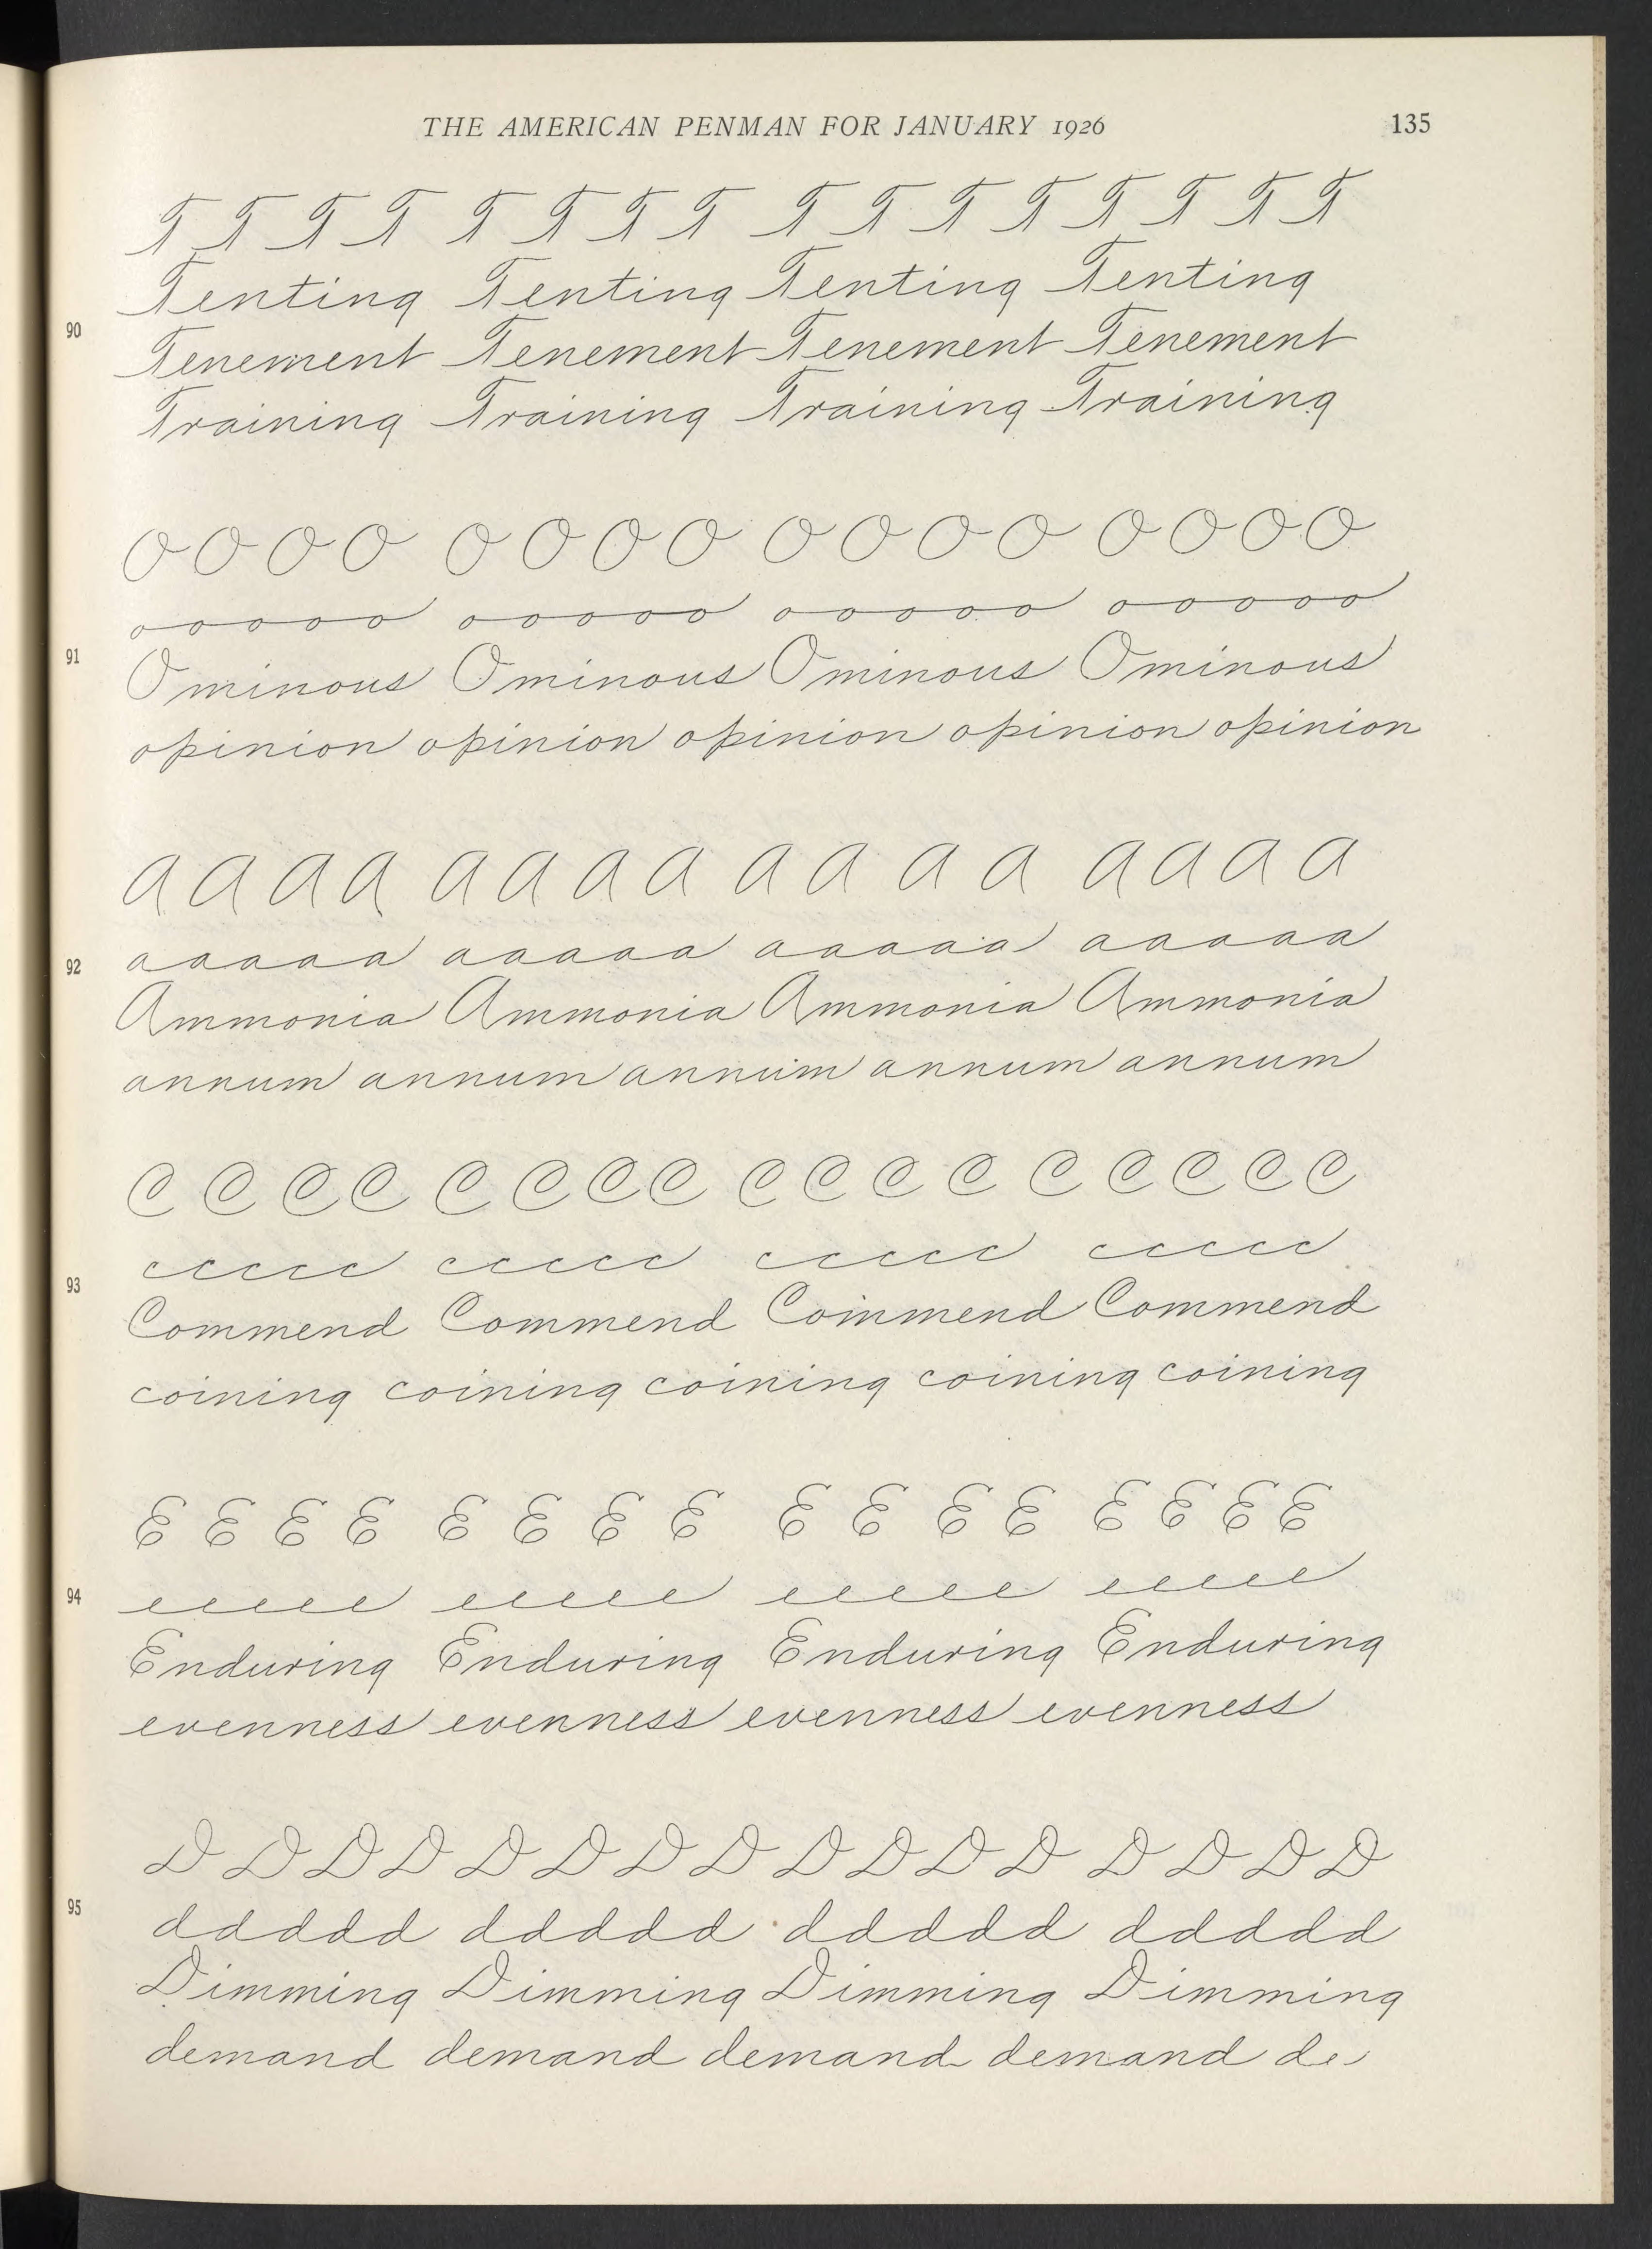 THE AMERICAN PENMAN FOR JANUARY 1926 135
T T T T T T T T T T T T T T T T
Tenting Tenting Tenting Tenting
90
Tenement Tenement Tenement Tenement
Training Training Training Training
O O O O O O O O O O O O O O O O
o o o o o o o o o o o o o o o o o o o o
91
Ominous Ominous Ominous Ominous
opinion opinion opinion opinion opinion
A A A A A A A A A A A A A A A A
a a a a a a a a a a a a a a a a a a a a
92
Ammonia Ammonia Ammonia Ammonia
annum annum annum annum annum
C C C C C C C C C C C C C C C C C
c c c c c c c c c c c c c c c c c c c c
93
Commend Commend Commend Commend
coining coining coining coining coining
E E E E E E E E E E E E E E E E
94
e e e e e e e e e e e e e e e e e e e e
Enduring Enduring Enduring Enduring
evenness evenness evenness evenness
D D D D D D D D D D D D D D D D
95
d d d d d d d d d d d d d d d d d d d d
Dimming Dimming Dimming Dimming
demand demand demand demand de